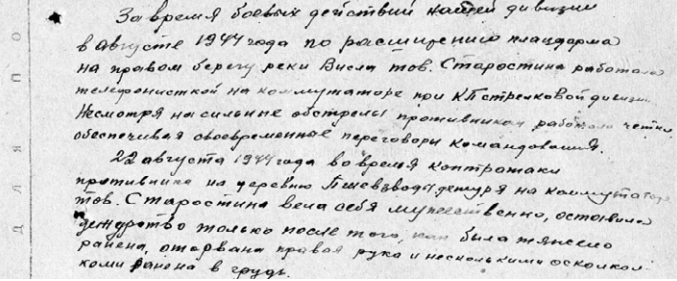 За время боевых действий нашей дивизии
в августе 1944 года по расширению плацдарма
на правом берегу реки Висла тов. Старостина работала
телефонисткой на коммутаторе при КП стрелковой дивизи
Несмотря на сильные обстрелы противником работала четко
обеспечивая своевременные переговоры командования.
22 августа 1944 года во время контратаки
противника на деревню дежуря на коммутаторе
тов. Старостина вела себя мужественно, оставила
дежурство только после того, как была тяжело
ранена, оторвана правая рука и несколькими осколкол-
ками ранена в грудь.
для по